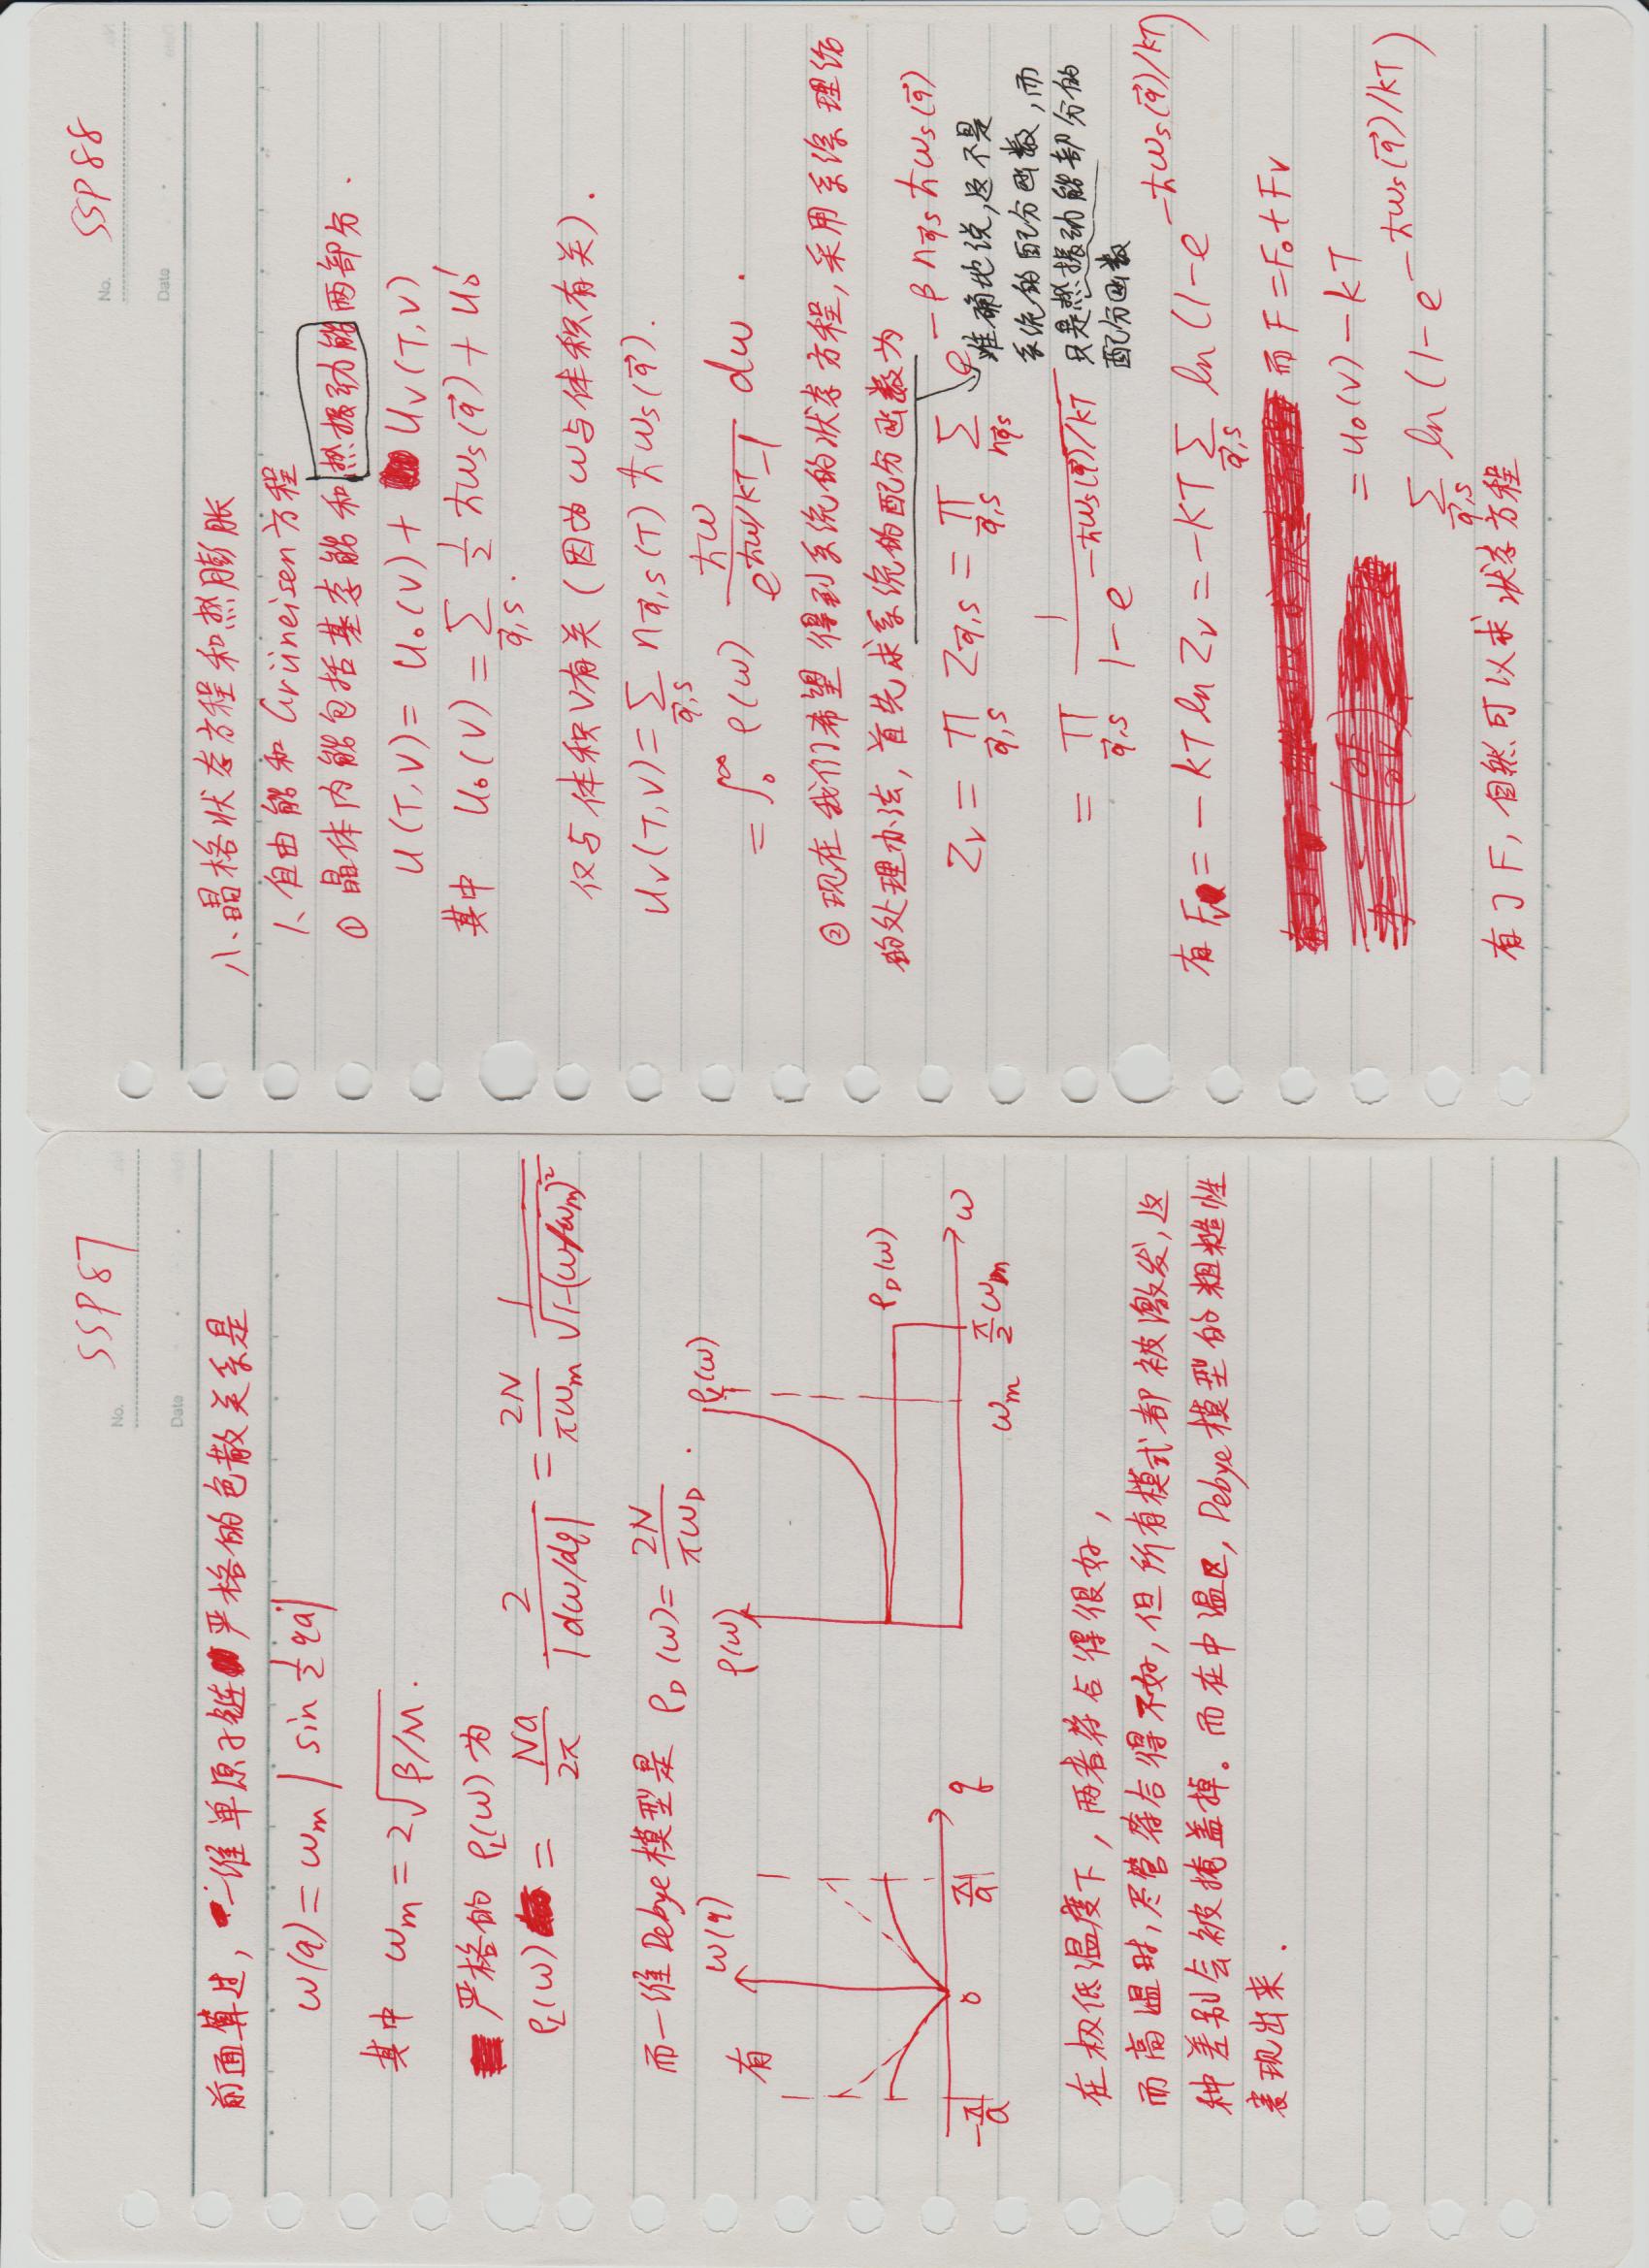 SSP87
No.
Date
前面算过, 一维单原子链严格的色散关系是
ω(q) = ωm | sin ½ qa |
其中 ωm = 2√(β/M) .
严格的 ρL(ω) 为
ρL(ω) = Na/2π 2/|dω/dq| = 2N/πωm 1/√(1-(ω/ωm)²)
而一维Debye模型是 ρD(ω) = 2N/πωD .
有
ω(q)
-π/a 0 π/a q
ρ(ω) ρL(ω)
ρD(ω)
ωm π/2 ωm ω
在极低温度下, 两者符合得很好,
而高温时, 尽管符合得不好, 但所有模式都被激发, 这
种差别会被掩盖掉。而在中温区, Debye模型的粗糙性
表现出来 .
SSP88
No.
Date
八、晶格状态方程和热膨胀
1、自由能和Grüneisen方程
① 晶体内能包括基态能和热振动能两部分 .
U(T,V) = U₀(V) + Uv(T,V)
其中 U₀(V) = Σq⃗,s ½ ħωs(q⃗) + U₀'
仅与体积V有关 (因为ω与体积有关) .
Uv(T,V) = Σq⃗,s nq⃗,s(T) ħωs(q⃗) .
= ∫₀^∞ ρ(ω) ħω/(e^(ħω/kT)-1) dω .
② 现在我们希望得到系统的状态方程, 采用系综理论
的处理办法, 首先求系统的配分函数为
Zv = Πq⃗,s Zq⃗,s = Πq⃗,s Σnq⃗s e^(-βnq⃗sħωs(q⃗))
准确地说, 这不是
系统的配分函数, 而
只是热振动能部分的
配分函数
= Πq⃗,s 1/(1-e^(-ħωs(q⃗)/kT))
有 Fv = -kT ln Zv = -kT Σq⃗,s ln (1-e^(-ħωs(q⃗)/kT))
而 F = F₀ + Fv
= U₀(V) - kT
Σq⃗,s ln (1-e^(-ħωs(q⃗)/kT))
有了F, 自然可以求状态方程